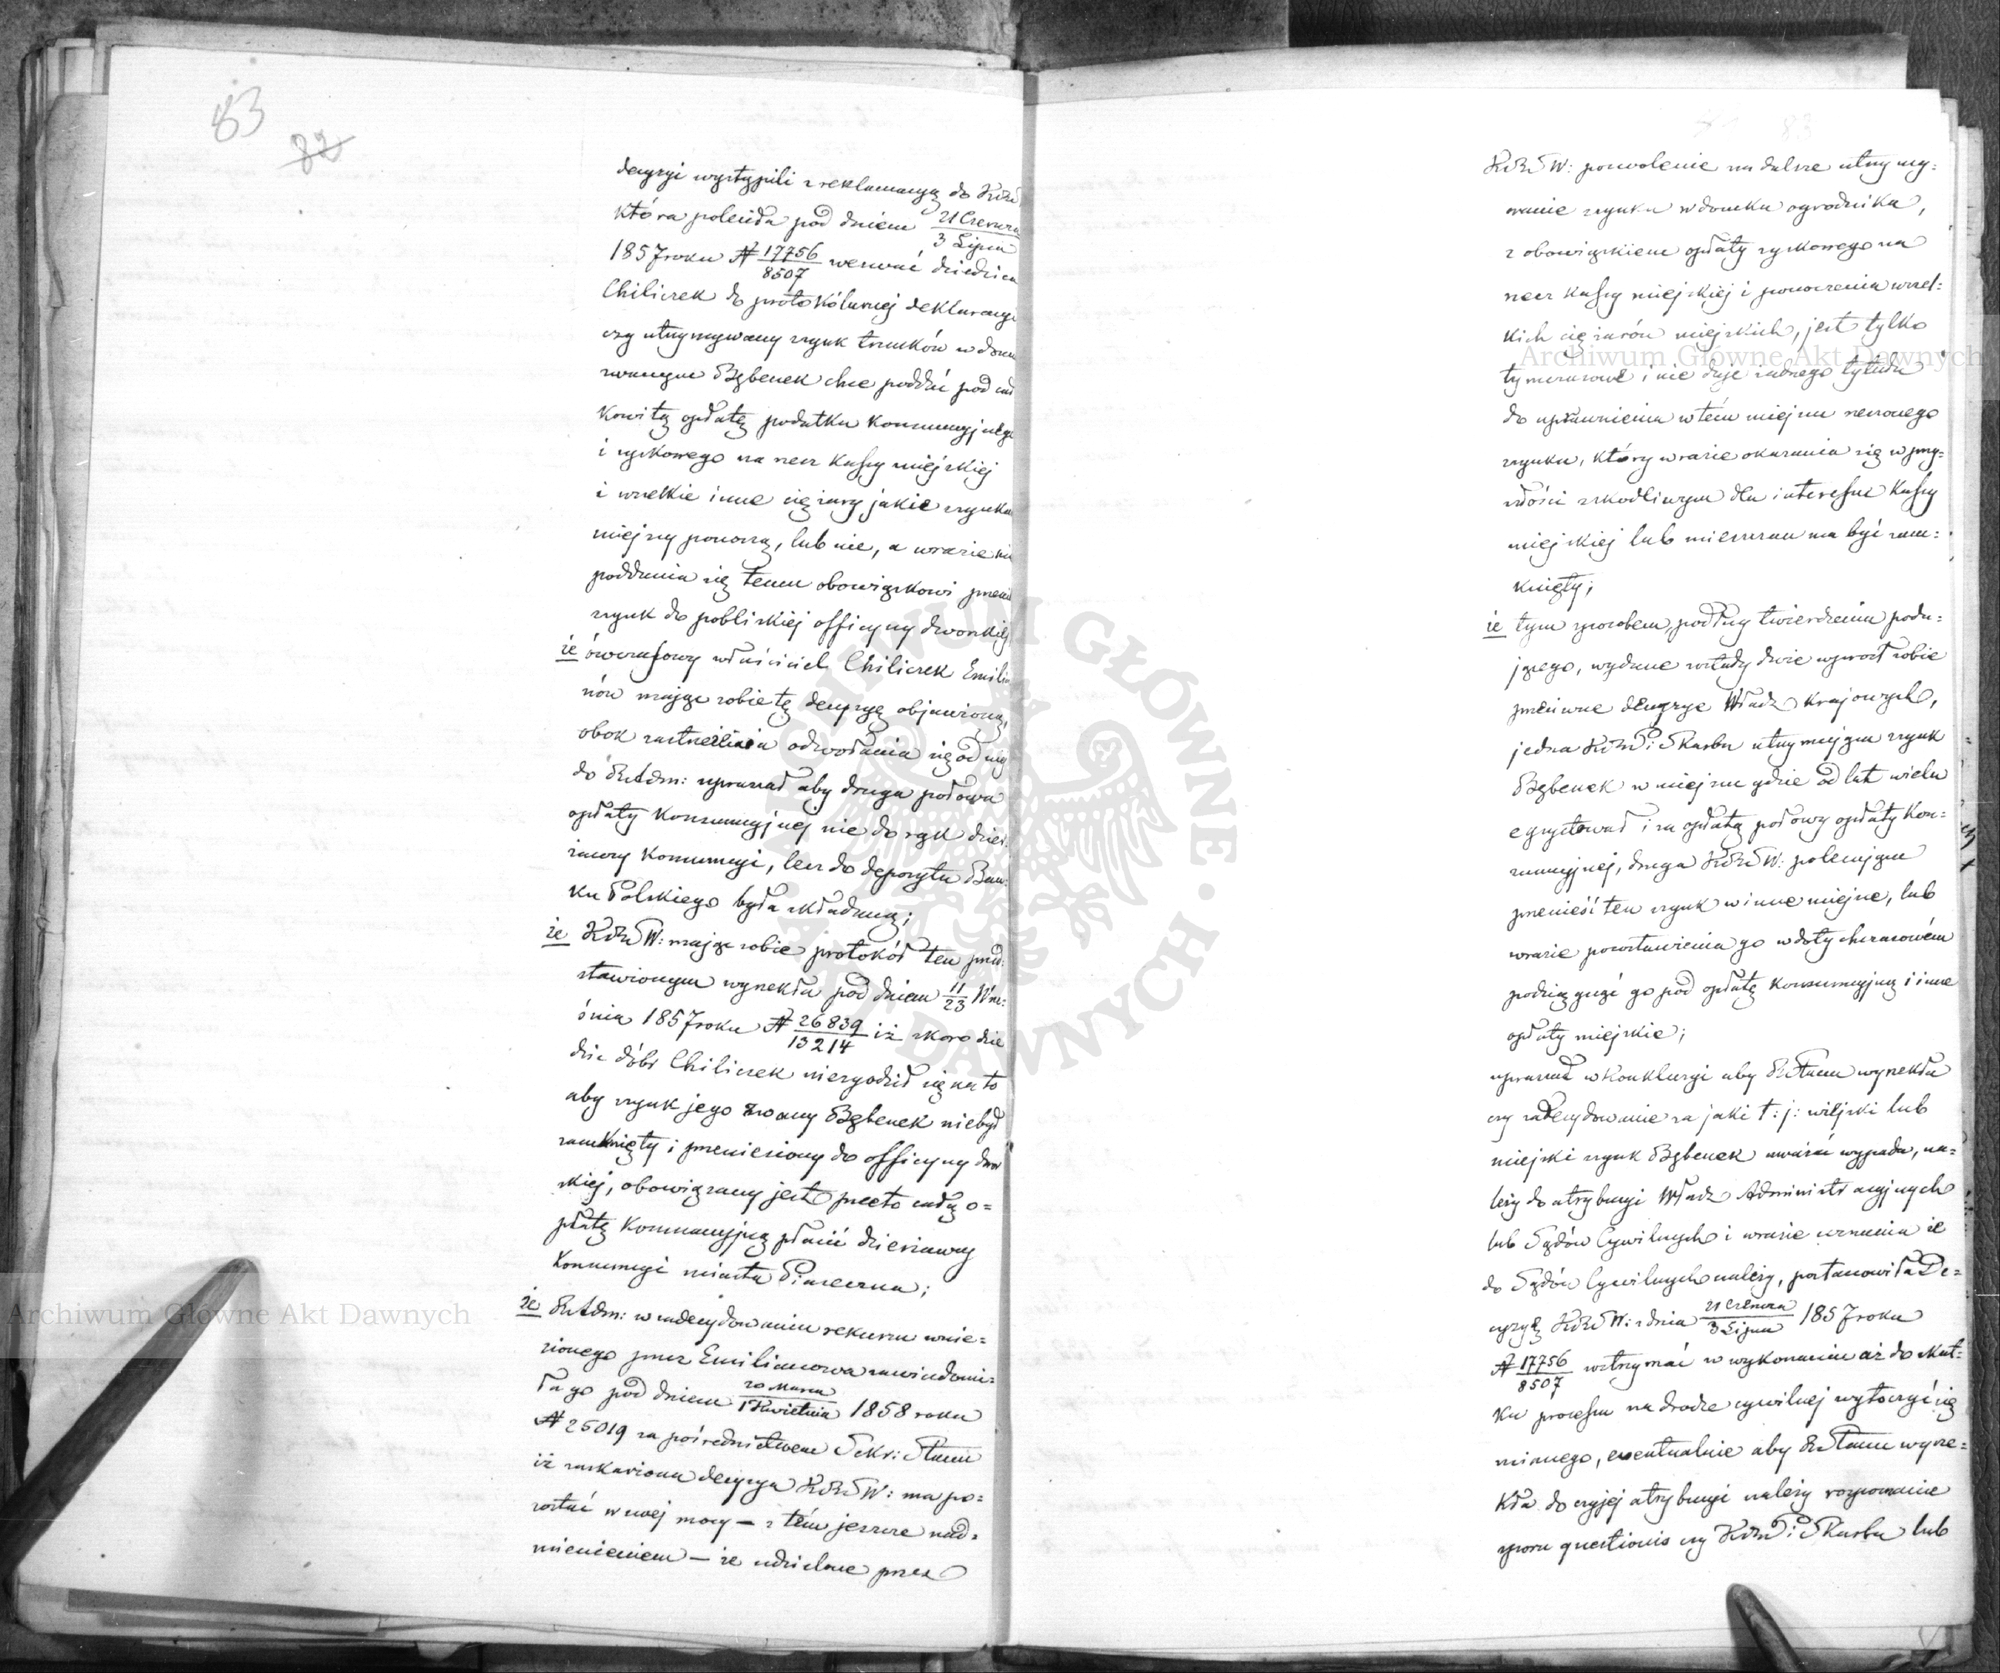 83
82
decyzyi wystąpili z reklamacyą do KRzS
która poleciła pod dniem 21 Czerwca / 3 Lipca
1857 roku № 17756/8507 wezwać dziedzica
Chiliczek do protokólarnej deklaracyi
czy utrzymywany szynk trunków w domu
zwanym Bębenek chce poddać pod cał
kowitą opłatę podatku konsumcyjnego
i szynkowego na rzecz Kassy miejskiej
i wszelkie inne ciężary jakie szynki
miejscy ponoszą, lub nie, a w razie nie
poddania się temu obowiązkowi przenieść
szynk do pobliskiej officyny dworskiej,
że ówczassowy właściciel Chiliczek Emilia
nów mając sobie tę decyzyę objawioną,
obok zastrzeżenia odwołania się od niej
do RAdm: upraszał aby druga połowa
opłaty konsumcyjnej nie do rąk dzier
żawcy konsumcyi, lecz do depozytu Ban
ku Polskiego była składaną;
że KRzSW: mając sobie protokół ten przed
stawionym wyrzekła pod dniem 11/23 Wrze:
śnia 1857 roku № 26839/13214 iż skoro dzie
dzic dóbr Chiliczek niezgodził się na to
aby szynk jego zwany Bębenek niebył
zamknięty i przeniesiony do officyny dwor
skiej, obowiązany jest przeto całą o=
płatę konsumcyjną płacić dzierżawcy
konsumcyi miasta Piaseczna;
że RAdm: w zadecydowaniu rekursu wnie=
sionego przez Emilianowa zawiadomi=
ła go pod dniem 20 Marca / 1 Kwietnia 1858 roku
№ 25019 za pośrednictwem Sekr: Stanu
iż zaskarżona decyzya KRzSW: ma po=
zostać w swej mocy — z tém jeszcze nad=
mienieniem — że udzielone przez
83
KRzSW: pozwolenie na dalsze utrzymy=
wanie szynku w domku ogrodnika,
z obowiązkiem opłaty szynkowego na
rzecz kassy miejskiej i ponoszenia wszel=
kich ciężarów miejskich, jest tylko
tymczasowé i nie daje żadnego tytułu
do uprawnienia w tém miejscu rzeczonego
szynku, który w razie okazania się w przy=
szłości szkodliwym dla interessu Kassy
miejskiej lub mieszczan ma być zam=
knięty;
że tym sposobem, podług twierdzenia poda=
jącego, wydane zostały dwie wprost sobie
przeciwne decyzye Władz krajowych,
jedna KRzP i Skarbu utrzymująca szynk
Bębenek w miejscu gdzie od lat wielu
egzystował i za opłatą połowy opłaty kon=
sumcyjnej, druga KRzSW: polecająca
przenieść ten szynk w inne miejsce, lub
w razie pozostawienia go w dotychczasowém
podciągnąć go pod opłatę konsumcyjną i inne
opłaty miejskie;
upraszał w Konkluzyi aby RStanu wyrzekła
czy zadecydowanie za jaki t: j: wiejski lub
miejski szynk Bębenek uważać wypada, na=
leży do atrybucyi Władz Administracyjnych
lub Sądów Cywilnych i w razie uznania że
do Sądów Cywilnych należy, postanowiła De=
cyzyę KRzSW: z dnia 21 Czerwca / 3 Lipca 1857 roku
№ 17756/8507 wstrzymać w wykonaniu aż do skut=
ku processu na drodze cywilnej wytoczyć się
mianego, ewentualnie aby RStanu wyrze=
kła do czyjej atrybucyi należy rozpoznanie
sporu questionis czy KRzP i Skarbu lub